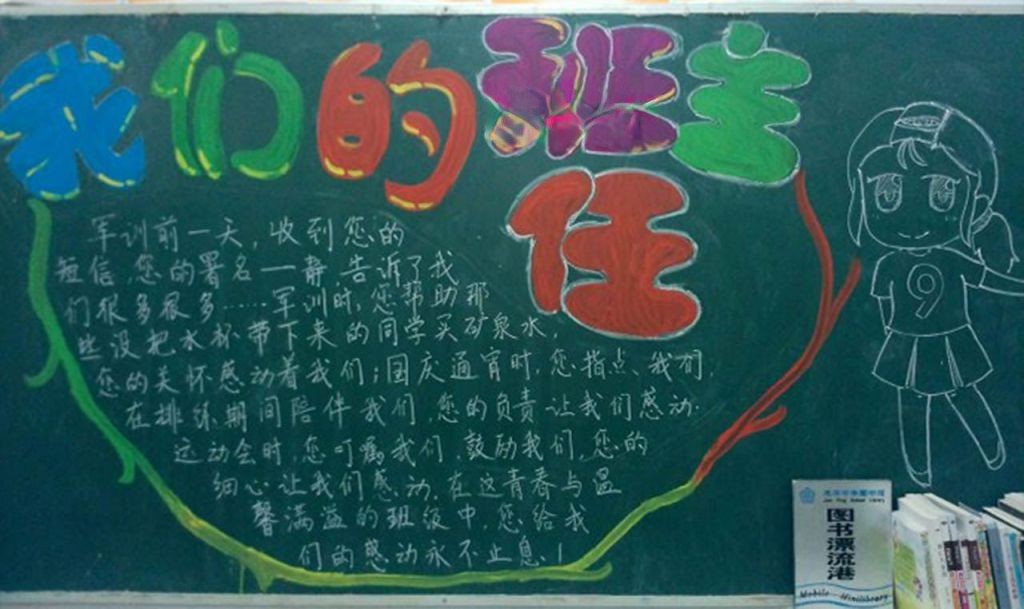 我们的班主任
军训前一天,收到您的
短信,您的署名——静,告诉了我
们很多很多……军训时,您帮助那
些没把水杯带下来的同学买矿泉水,
您的关怀感动着我们;国庆通宵时,您指点我们,
在排练期间陪伴我们,您的负责让我们感动.
运动会时,您叮嘱我们,鼓励我们,您的
细心让我们感动.在这青春与温
馨满溢的班级中,您给我
们的感动永不止息!
9
图书漂流港
Mobile Minilibrary